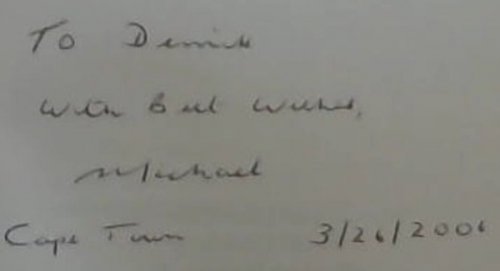 To Derrick
With Best Wishes,
Michael
Cape Town 3/26/2006